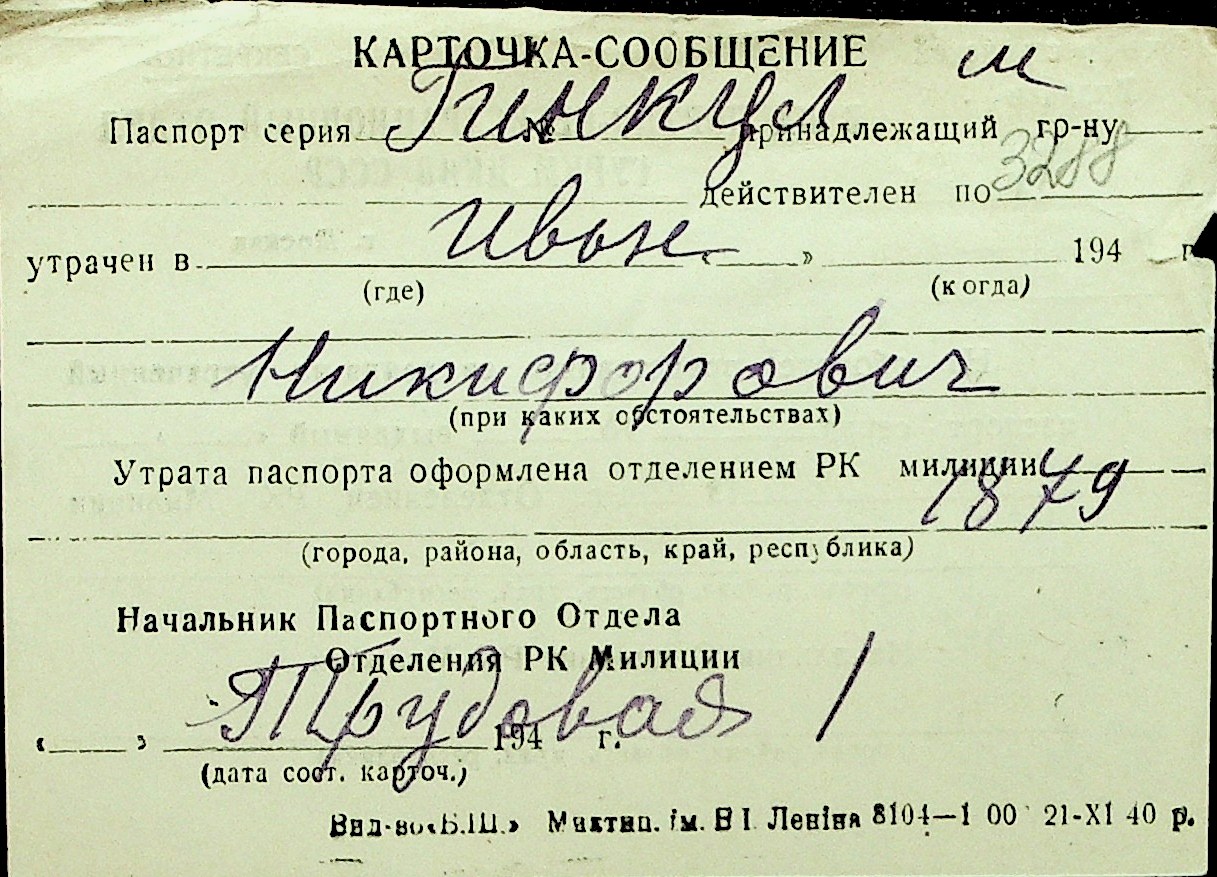 КАРТОЧКА-СООБЩЕНИЕ
м
Гинкул
Паспорт серия № принадлежащий гр-ну
3288
действителен по
Иван
утрачен в « » 194 г.
(где) (когда)
Никифорович
(при каких обстоятельствах)
Утрата паспорта оформлена отделением РК милиции
1879
(города, района, область, край, республика)
Начальник Паспортного Отдела
Отделения РК Милиции
Трудовая 1
« » 194 г.
(дата сост. карточ.)
Вид-во «Б.Ш.» Миктип. ім. В І Леніна 8104—1 00 21-XI 40 р.